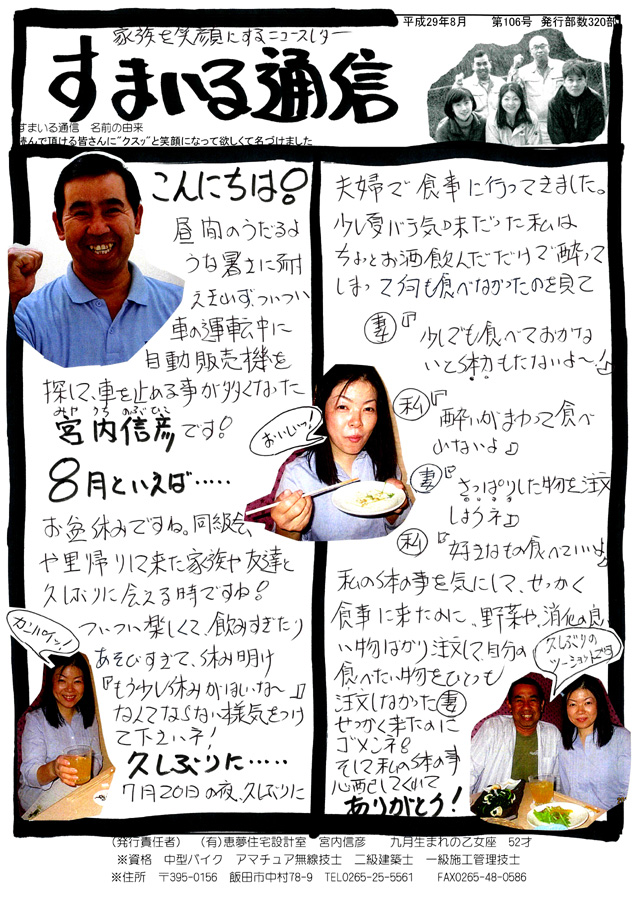 平成29年8月 第106号 発行部数320部
家族を笑顔にするニュースレター
すまいる通信
すまいる通信 名前の由来
読んで頂ける皆さんに"クスッ"と笑顔になって欲しくて名づけました
こんにちは!
昼間のうだるよ
うな暑さに耐
えきれずついつい
車の運転中に
自動販売機を
探して、車を止める事が多くなった
みや うち のぶ ひこ
宮内信彦です!
8月といえば・・・・・
お盆休みですね。同級会
や里帰りして来た家族や友達と
久しぶりに会える時ですね!
ついつい楽しくて、飲みすぎたり
カンパイッ!
あそびすぎて、休み明け
『もう少し休みがほしいな〜』
なんてならない様気をつけ
て下さいネ!
久しぶりに・・・・・
7月20日の夜、久しぶりに
夫婦で食事に行ってきました。
少し夏バテ気味だった私は
ちょっとお酒飲んだだけで酔って
しまって何も食べなかったのを見て
妻『少しでも食べておかな
いと体力もたないよ〜!』
私『酔いがまわって食べ
れないよ』
おいしいっ!
妻『さっぱりした物を注文
しようネ』
私『好きなもの食べていいよ』
私の体の事を気にして、せっかく
食事に来たのに、野菜や、消化の良
い物ばかり注文して、自分の
食べたい物をひとつも
注文しなかった妻
久しぶりの
ツーショットです
せっかく来たのに
ゴメンネ!
そして私の体の事
心配してくれて
ありがとう!
(発行責任者) (有)恵夢住宅設計室 宮内信彦 九月生まれの乙女座 52才
※資格 中型バイク アマチュア無線技士 二級建築士 一級施工管理技士
※住所 〒395-0156 飯田市中村78-9 TEL0265-25-5561 FAX0265-48-0586